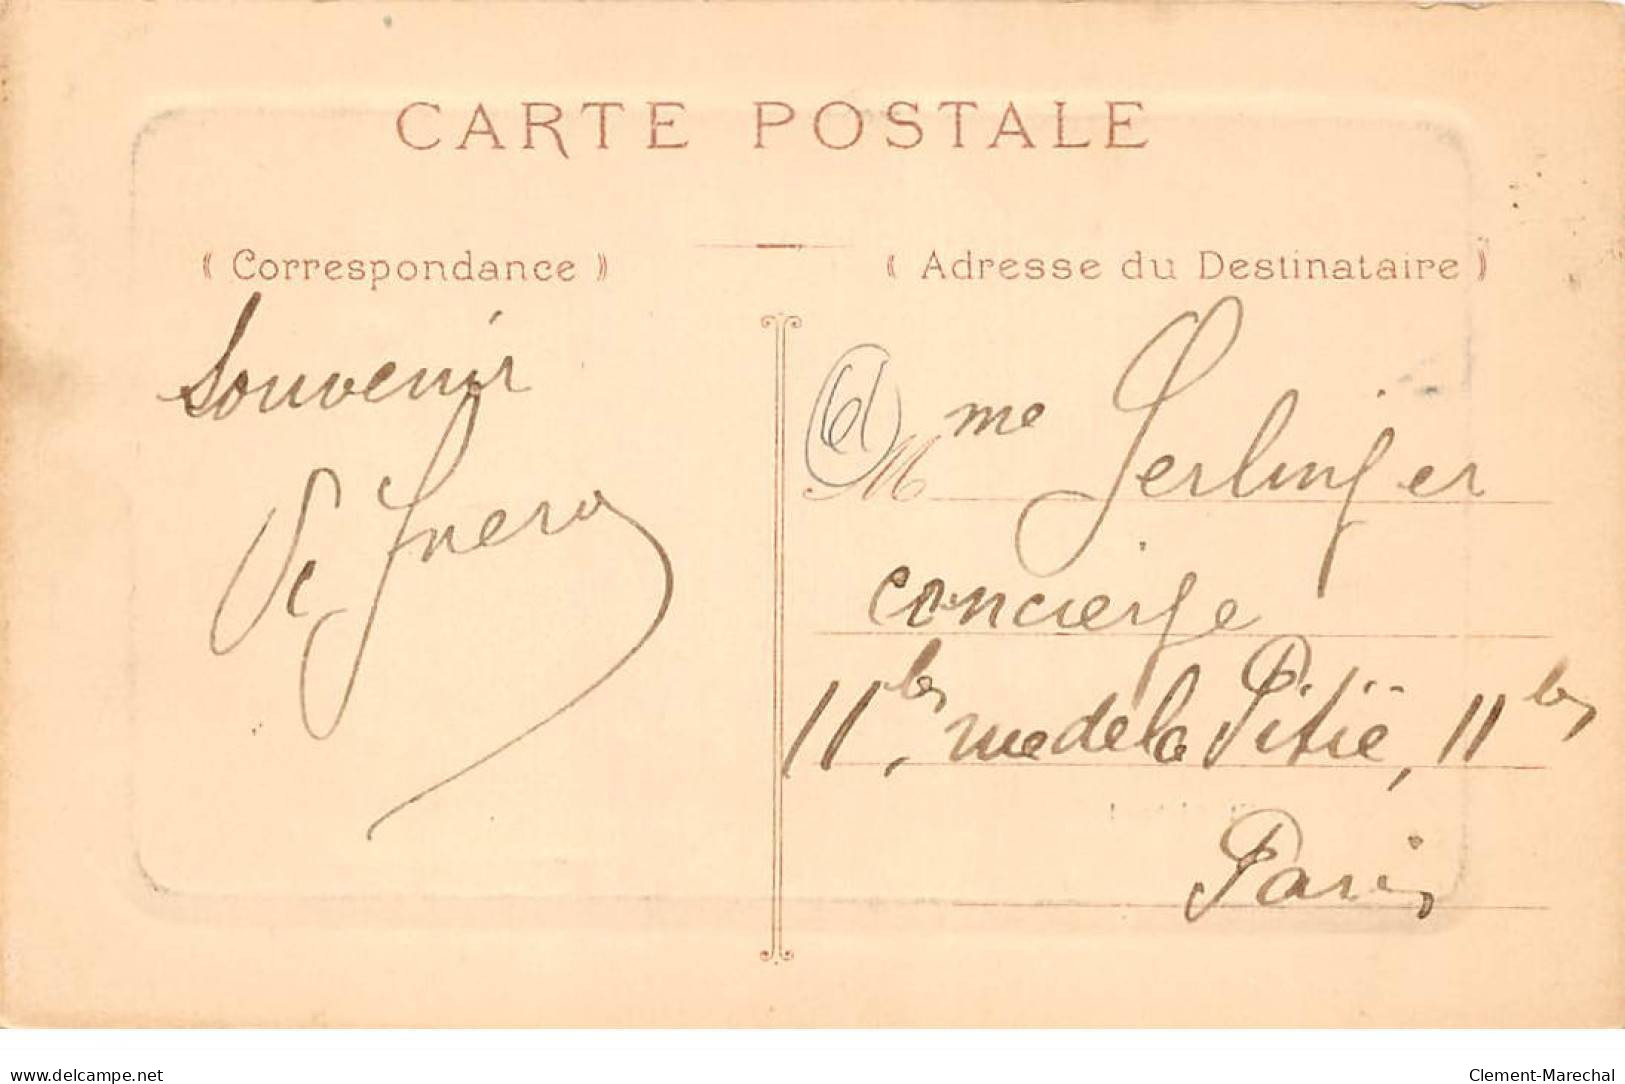 CARTE POSTALE
« Correspondance »
« Adresse du Destinataire »
Souvenir
Mme Serlinger
concierge
11bis, rue de la Pitié, 11bis
Paris
www.delcampe.net
Clement-Marechal